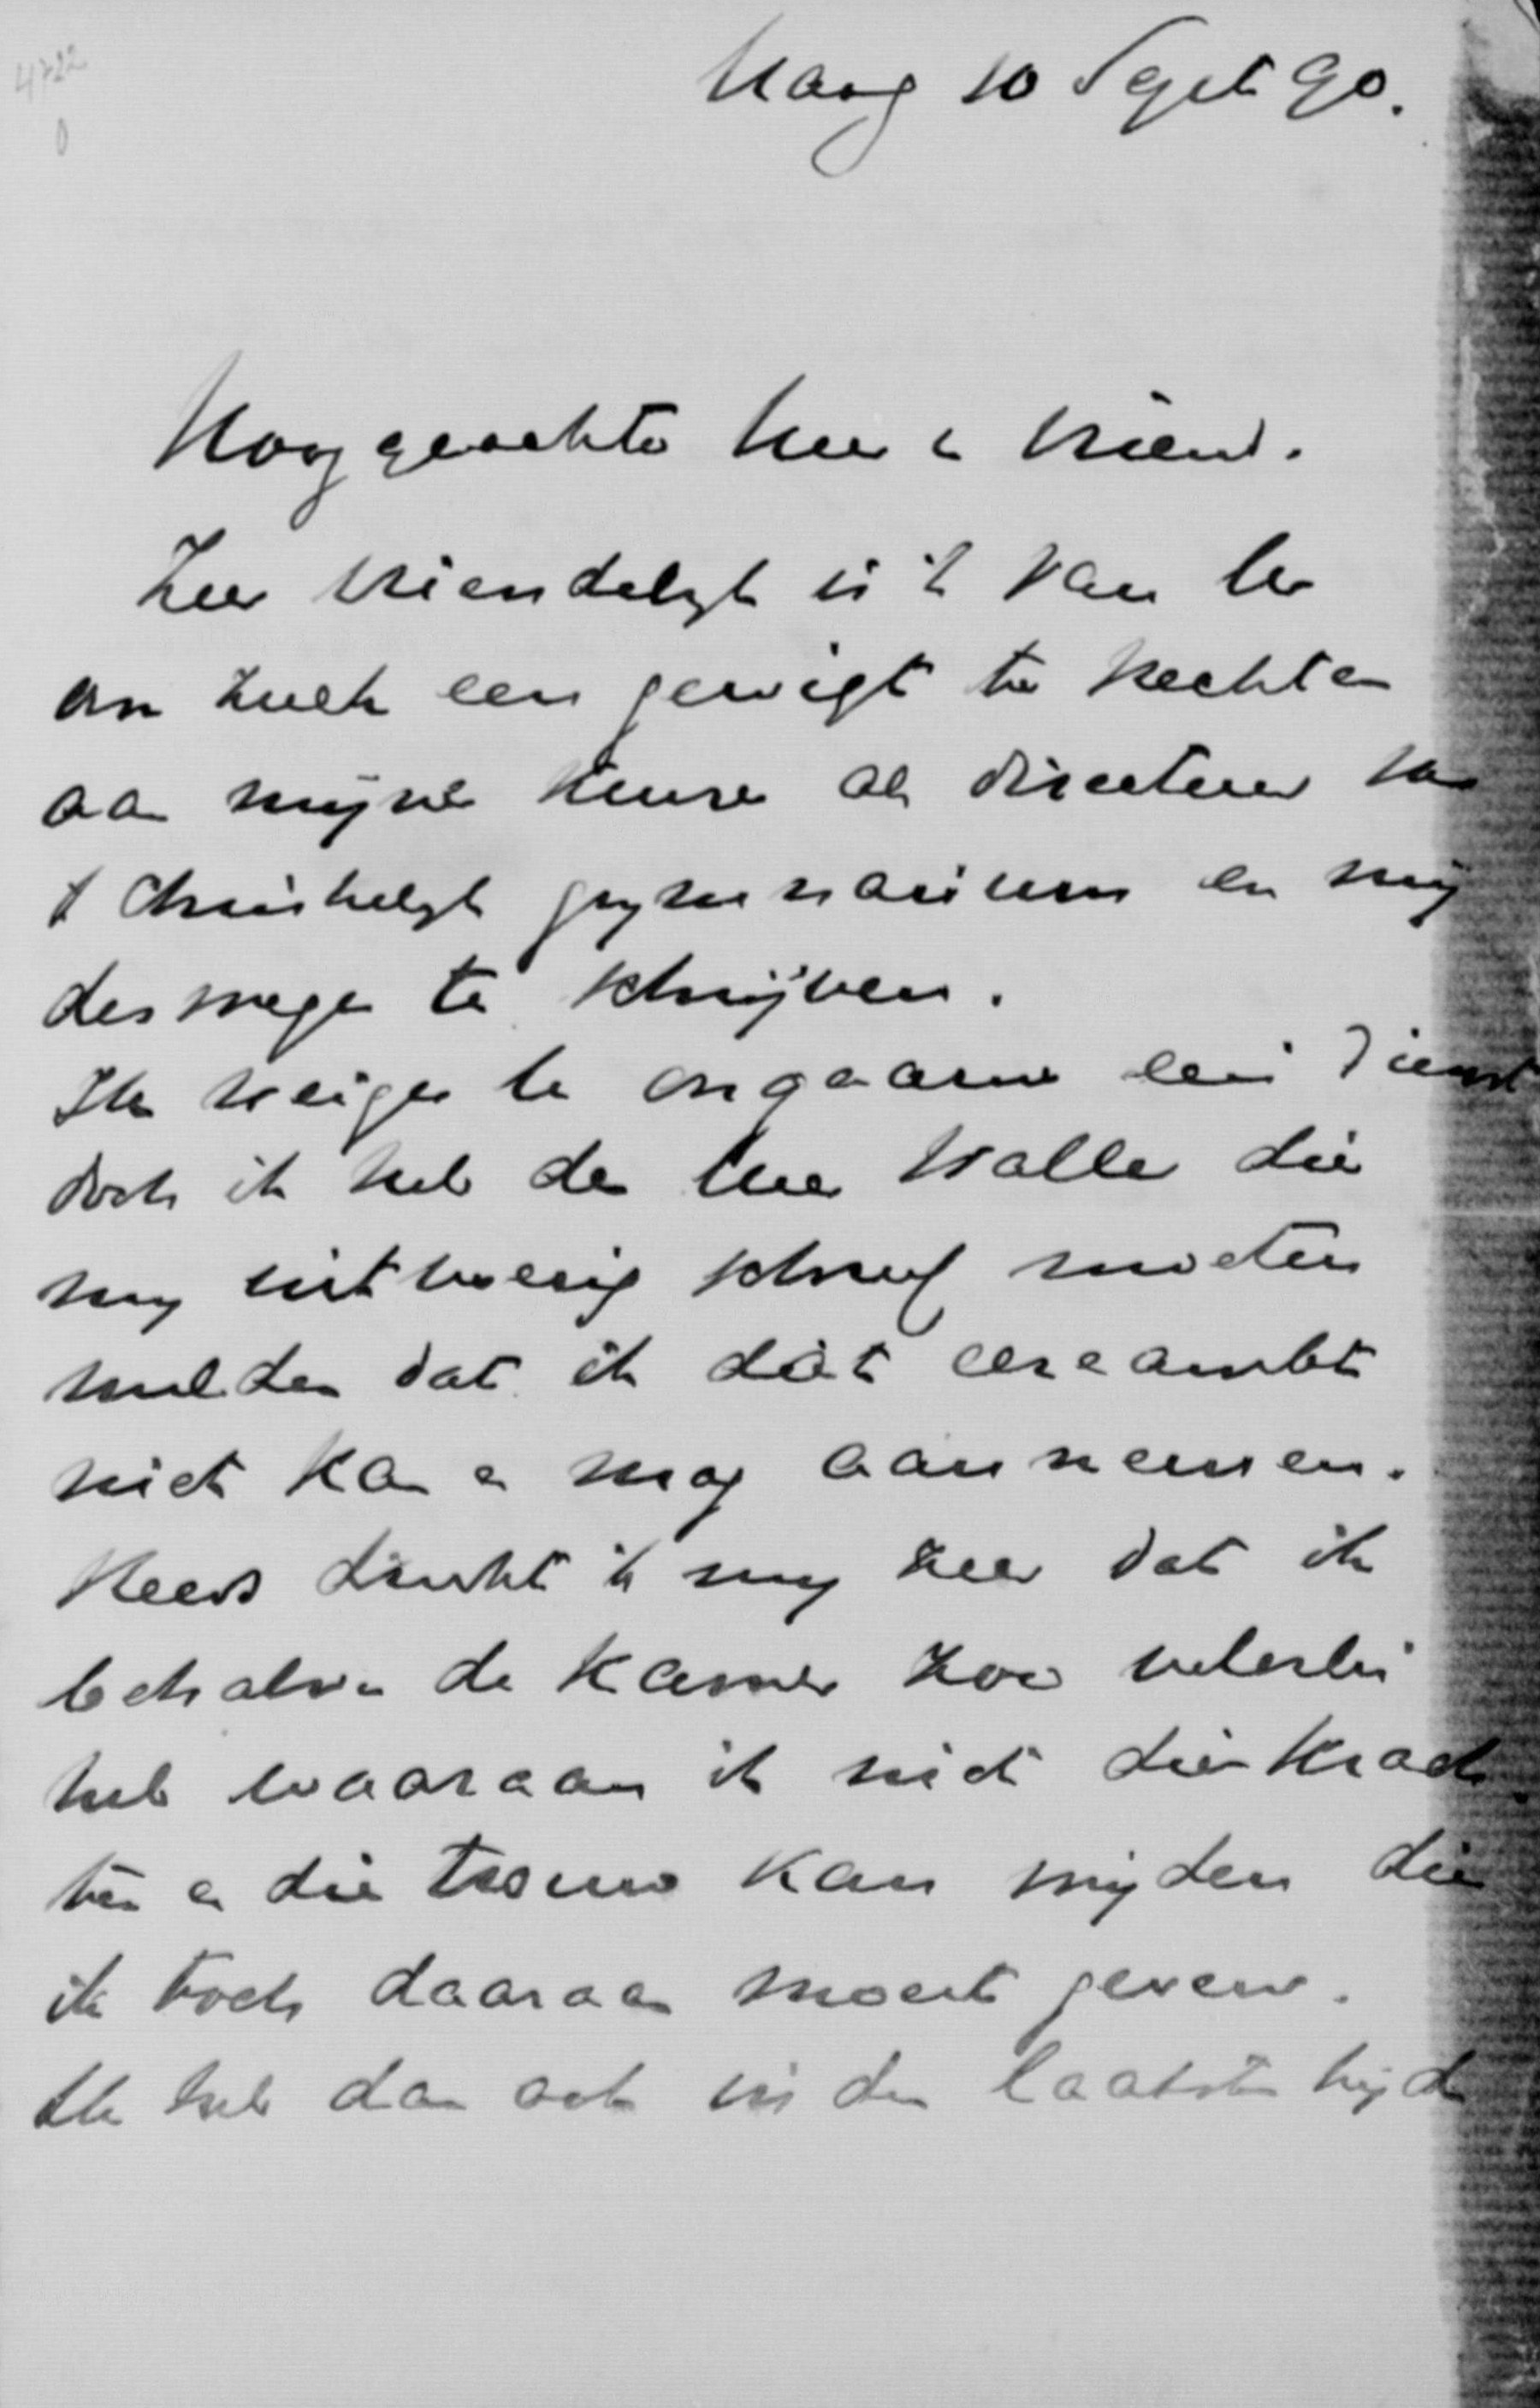 4722
0
Haag 10 Sept 90.
Hooggeachte Heer & Vriend.
Zeer vriendelyk is 't van Uw
om zulk een gewigt te hechten
aan mijne keuze als directeur van
't Christelyk gymnasium en mij
deswege te schrijven.
Ik weiger U ongaarne een dienst
doch ik heb de Heer Walle die
my uitvoerig schreef moeten
melden dat ik dàt eereambt
niet kan en mag aannemen.
Reeds drukt 't my zeer dat ik
behalve de Kamer zoo velerlei
heb waaraan ik niet die krach
ten en die trouw kan wijden die
ik toch daaraan moest geven.
Ik heb dan ook in den laatsten tijd